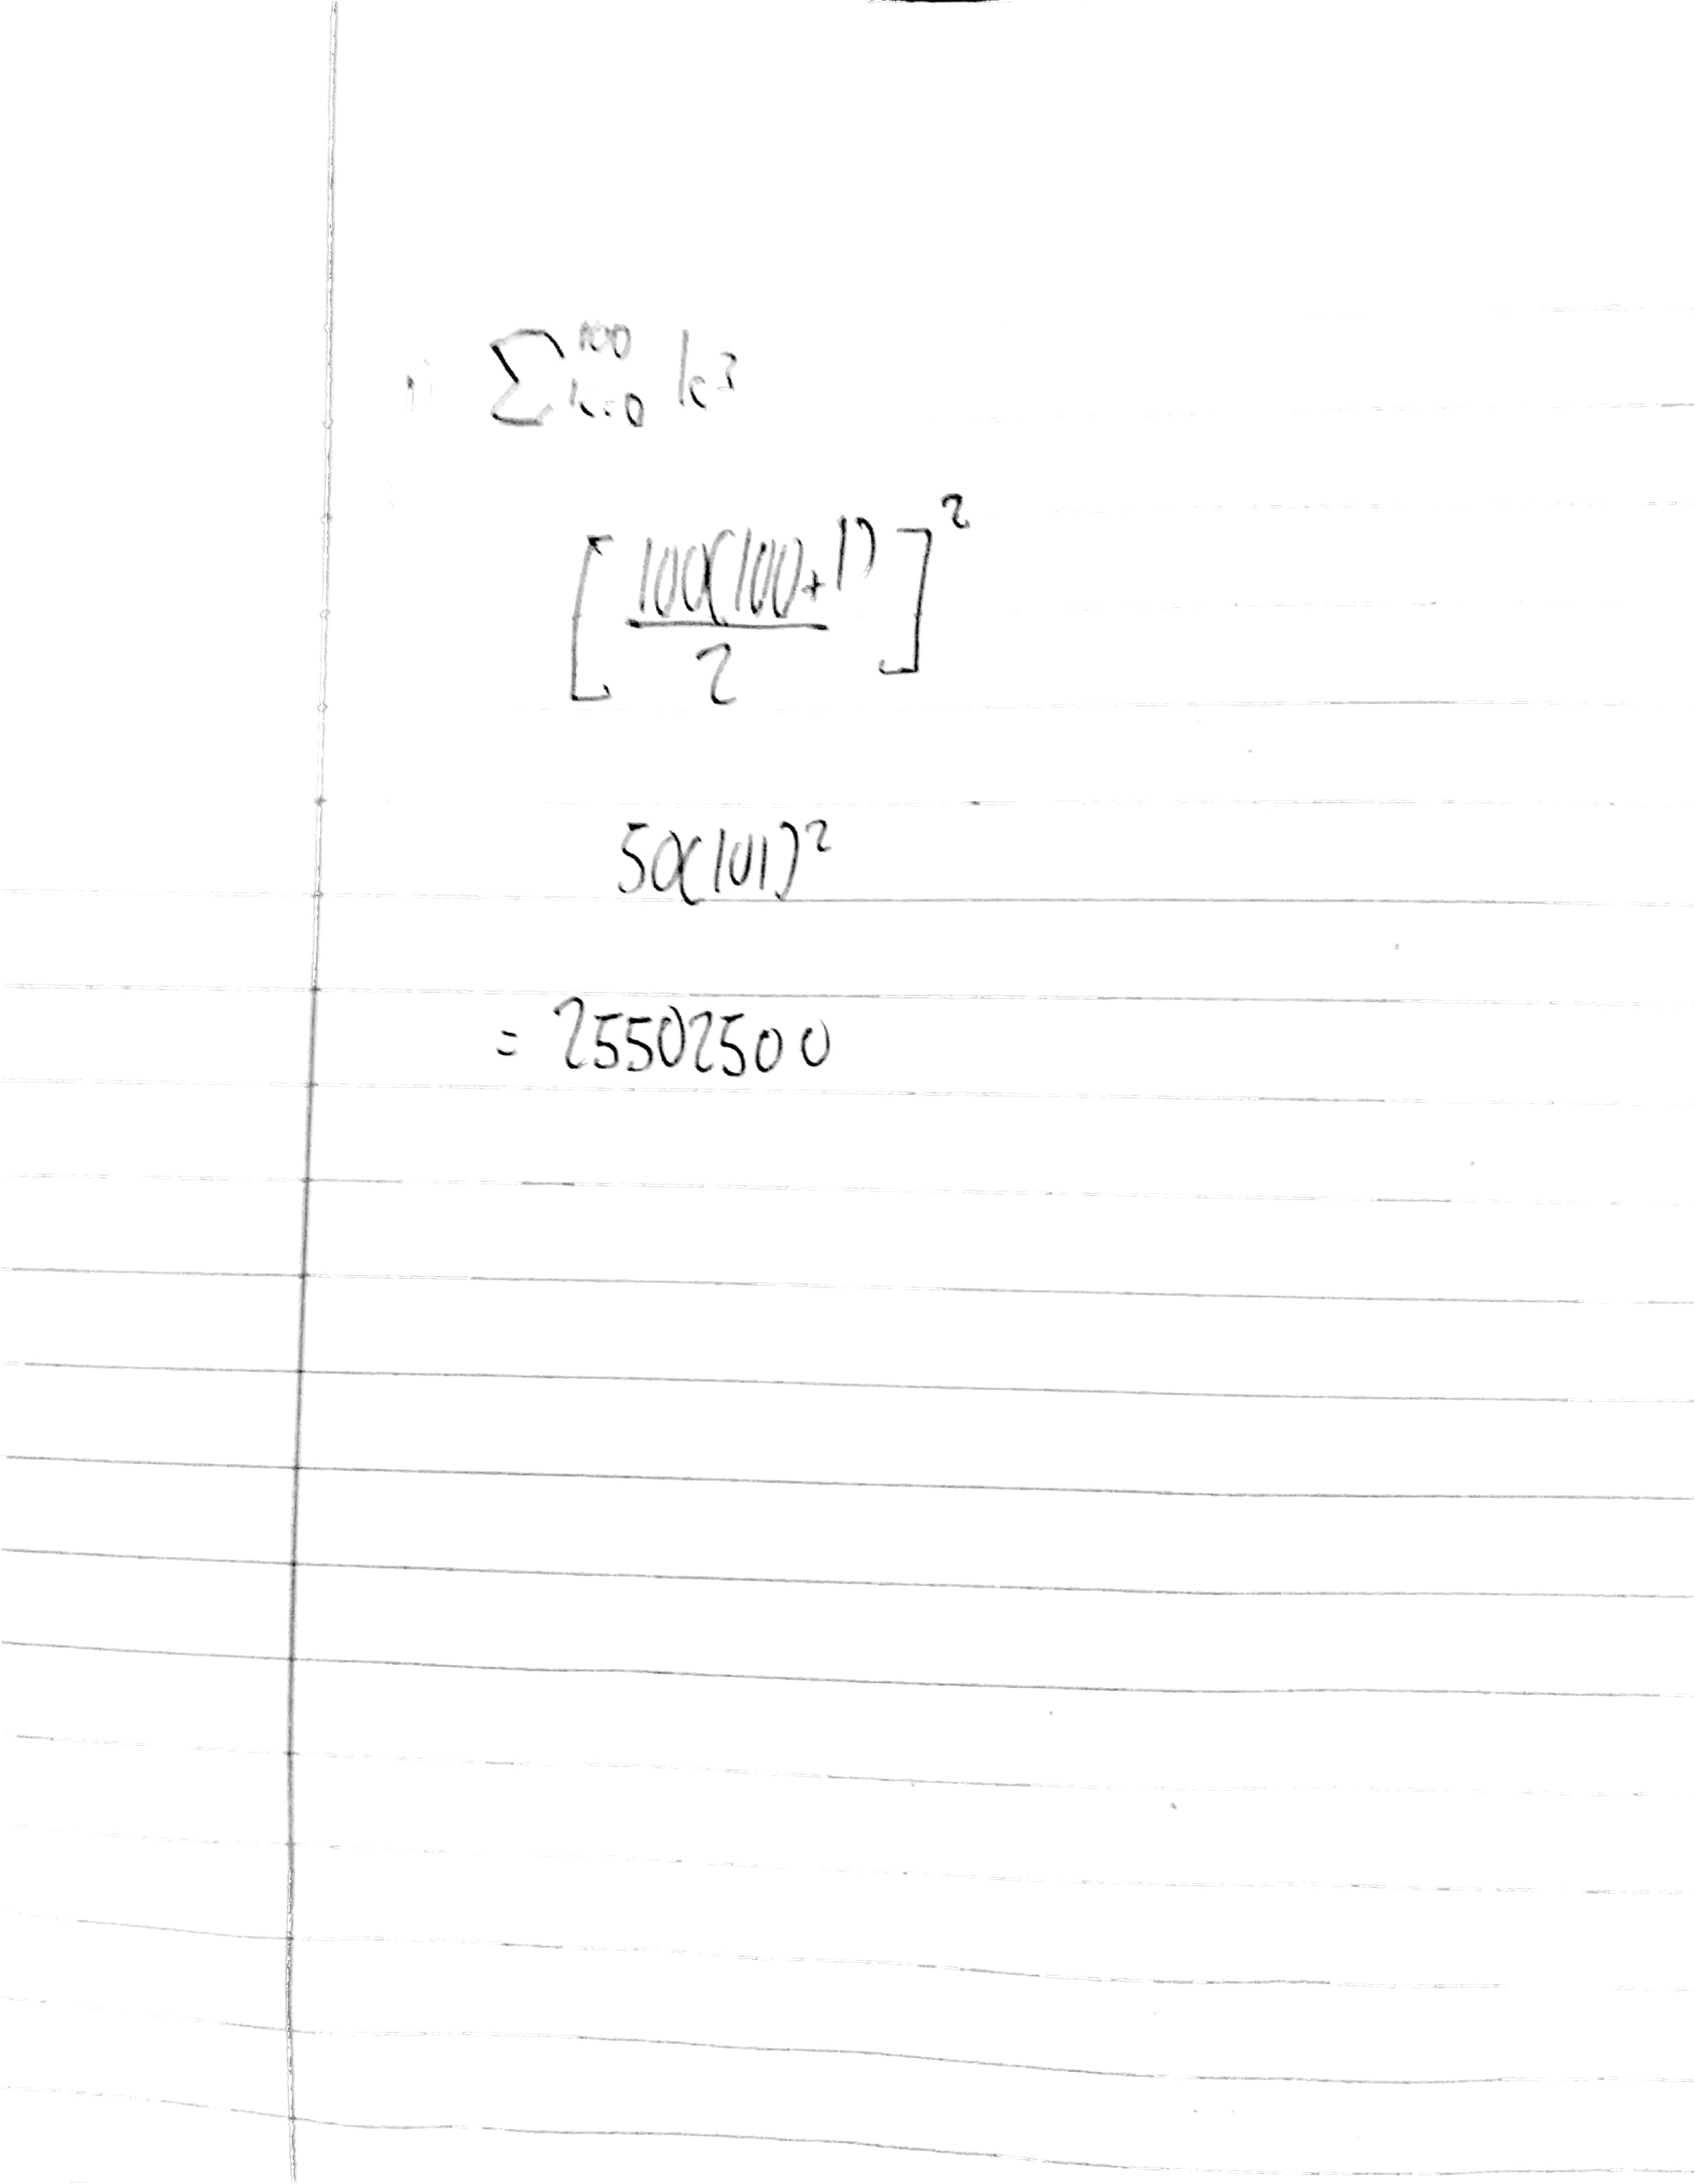 1) ∑_{k=0}^{100} k³
[100(100+1)/2]²
50(101)²
= 25502500